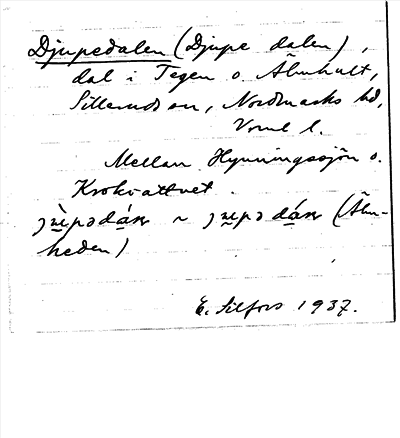 Djupedalen (Djupe dalen),
dal i Tegen o. Älmhult,
Silleruds sn, Nordmarks hd,
Vrml l.
Mellan Hynningssjön o.
Krokvattnet.
(Älm-
heden)
E. Silfors 1937.